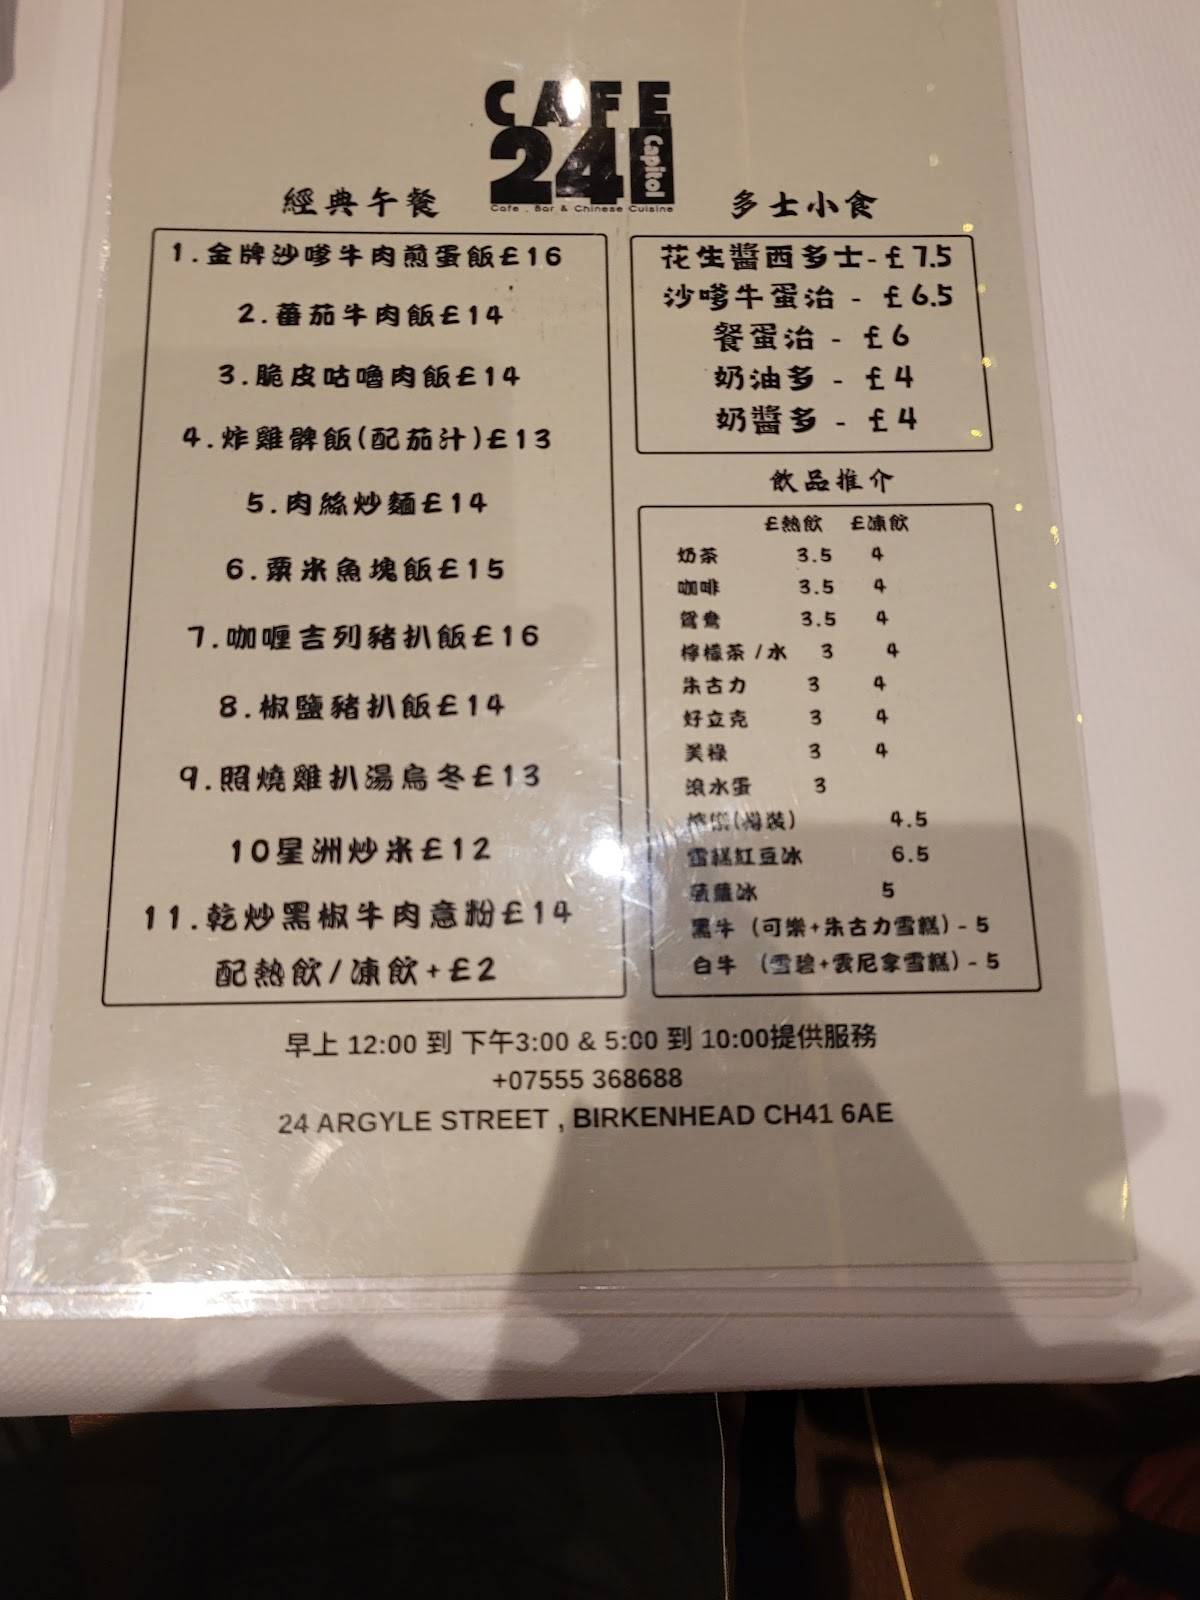 CAFE
24 Capitol
Cafe . Bar & Chinese Cuisine
經典午餐
1.金牌沙嗲牛肉煎蛋飯£16
2.蕃茄牛肉飯£14
3.脆皮咕嚕肉飯£14
4.炸雞髀飯(配茄汁)£13
5.肉絲炒麵£14
6.粟米魚塊飯£15
7.咖喱吉列豬扒飯£16
8.椒鹽豬扒飯£14
9.照燒雞扒湯烏冬£13
10星洲炒米£12
11.乾炒黑椒牛肉意粉£14
配熱飲/凍飲+£2
多士小食
花生醬西多士-£7.5
沙嗲牛蛋治 - £6.5
餐蛋治 - £6
奶油多 - £4
奶醬多 - £4
飲品推介
£熱飲 £凍飲
奶茶 3.5 4
咖啡 3.5 4
鴛鴦 3.5 4
檸檬茶 /水 3 4
朱古力 3 4
好立克 3 4
美祿 3 4
滾水蛋 3
(樽裝) 4.5
雪糕紅豆冰 6.5
菠蘿冰 5
黑牛 (可樂+朱古力雪糕) - 5
白牛 (雪碧+雲尼拿雪糕) - 5
早上 12:00 到 下午3:00 & 5:00 到 10:00提供服務
+07555 368688
24 ARGYLE STREET , BIRKENHEAD CH41 6AE